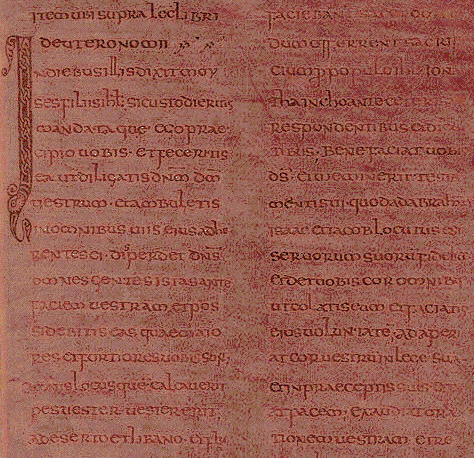 ITEM UBI SUPRA LECT LIBRI
DEUTERONOMII
IN DIEBUS ILLIS DIXIT MOY
SES FILIIS ISRL SI CUSTODIERITIS
MANDATA QUE EGO PRAE
CIPIO UOBIS ET FECERITIS
EA UT DILIGATIS DNM DM
UESTRUM ET AMBULETIS
IN OMNIBUS UIIS EIUS ADHE
RENTES EI DISPERDET DNS
OMNES GENTES ISTAS ANTE
FACIEM UESTRAM ET POS
SIDEBITIS EAS QUAE MAIO
RES ET FORTIORES UOBIS SUN
LOCUS QUE CALCAUERIT
PES UESTER UESTER ERIT
A DESERTO ET LIBANO
FACIEBANT
DUM OFFERRENT SACRI
CIUM POPULO IHL ION
THA INCHOANTE CETERIS
RESPONDENTIBUS ET DICE
TIBUS BENEFACIAT UOBIS
DS ET MEMINERIT TESTA
MENTI SUI QUOD AD ABRAHAM
ISAAC ET IACOB LOCUTUS EST
SERUORUM SUORUM FIDELI
ET DET UOBIS COR OMNIB
UT COLATIS EUM ET FACIATI
EIUS UOLUNTATE ADAPERI
AT COR UESTRUM IN LEGE SUA
ET IN PRAECEPTIS SUIS ET
AT PACEM EXAUDIAT ORA
TIONEM UESTRAM ET RE